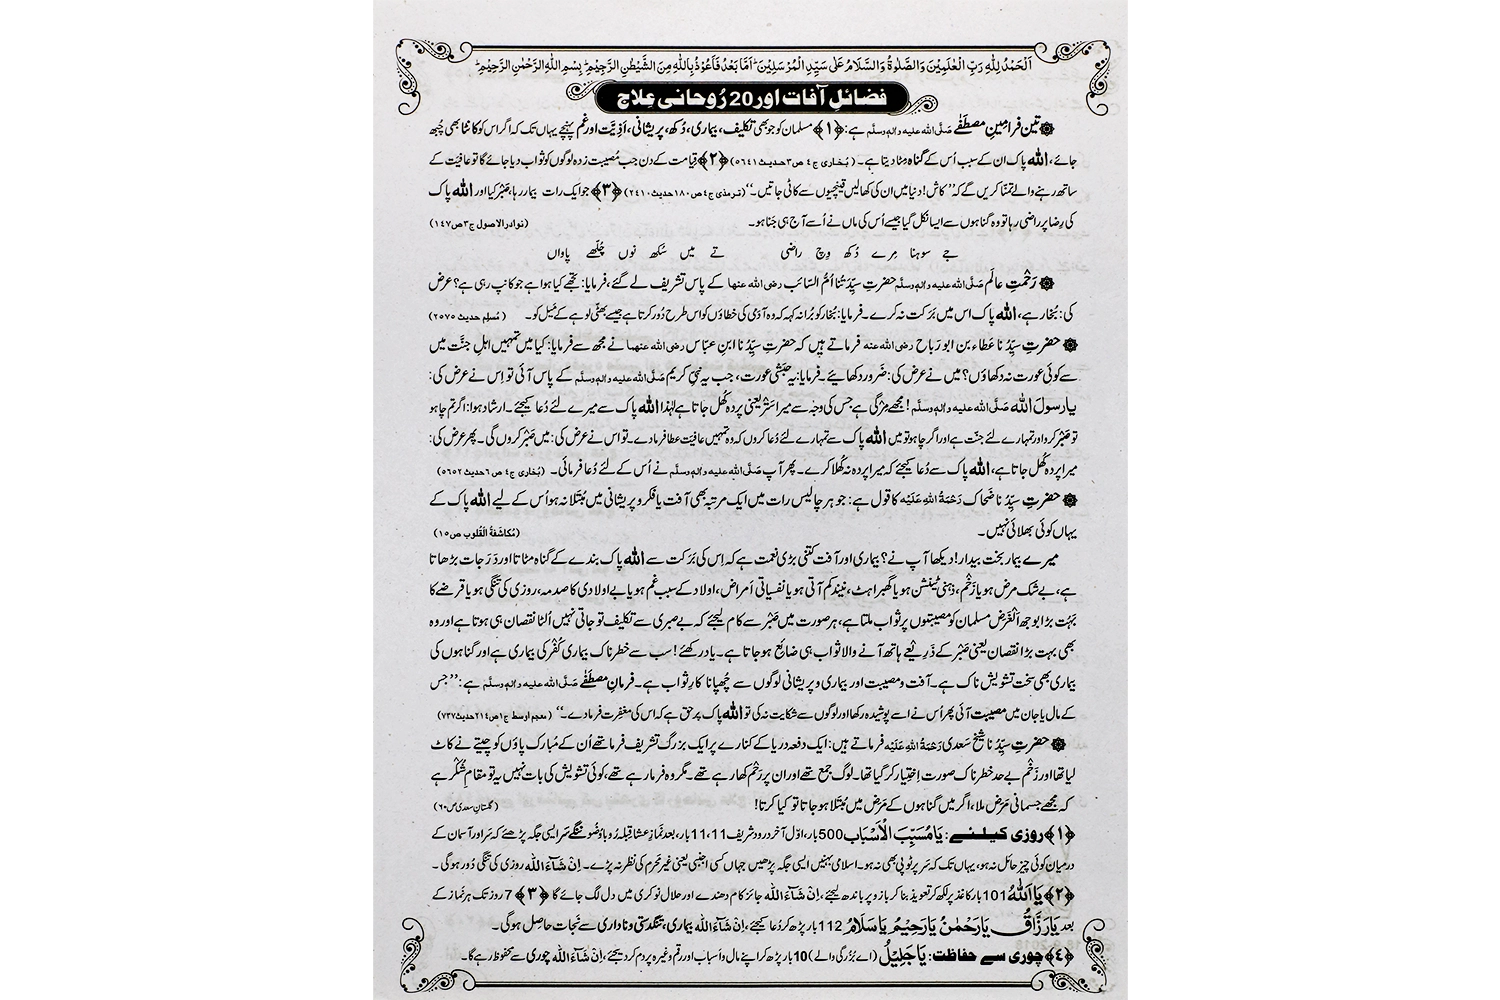 اَلْحَمْدُ لِلّٰهِ رَبِّ الْعٰلَمِيْنَ وَالصَّلٰوةُ وَالسَّلَامُ عَلٰى سَيِّدِ الْمُرْسَلِيْنَ ؕ اَمَّا بَعْدُ فَاَعُوْذُ بِاللّٰهِ مِنَ الشَّيْطٰنِ الرَّجِيْمِ ؕ بِسْمِ اللّٰهِ الرَّحْمٰنِ الرَّحِيْمِ ؕ
فضائلِ آفات اور 20 رُوحانی عِلاج
۞ تین فرامینِ مصطفٰے صَلَّی اللہ علیہ والہٖ وسلَّم ہے: ﴿۱﴾ مسلمان کو جو بھی تکلیف، بیماری، دُکھ، پریشانی، اَذِیَّت اور غم پہنچے یہاں تک کہ اگر اس کو کانٹا بھی چُبھ
جائے، اللہ پاک ان کے سبب اُس کے گناہ مِٹا دیتا ہے۔ (بُخاری ج۴ ص۳ حدیث ۵۶۴۱) ﴿۲﴾ قِیامت کے دن جب مُصیبت زدہ لوگوں کو ثواب دیا جائے گا تو عافیّت کے
ساتھ رہنے والے تمنّا کریں گے کہ ’’کاش! دنیا میں ان کی کھالیں قینچیوں سے کاٹی جاتیں۔‘‘ (ترمذی ج۴ ص۱۸۰ حدیث ۲۴۱۰) ﴿۳﴾ جو ایک رات بیمار رہا، صَبْر کیا اور اللہ پاک
کی رِضا پر راضی رہا تو وہ گناہوں سے ایسا نکل گیا جیسے اُس کی ماں نے اُسے آج ہی جَنا ہو۔ (نوادر الاصول ج۳ ص۱۴۷)
جے سوہنا مِرے دُکھ وِچ راضی تے میں سُکھ نوں چُلّھے پاواں
۞ رَحْمتِ عالَم صَلَّی اللہ علیہ والہٖ وسلَّم حضرتِ سیِّدَتُنا اُمُّ السّائب رضی اللہ عنہا کے پاس تشریف لے گئے، فرمایا: تجھے کیا ہوا ہے جو کانپ رہی ہے؟ عرض
کی: بُخار ہے، اللہ پاک اس میں بَرَکت نہ کرے۔ فرمایا: بُخار کو بُرا نہ کہہ کہ وہ آدَمی کی خطاؤں کو اس طرح دُور کرتا ہے جیسے بھٹّی لوہے کے مَیل کو۔ (مُسلِم حدیث ۲۵۷۰)
۞ حضرتِ سیِّدُنا عَطاء بن ابو رَباح رضی اللہ عنہ فرماتے ہیں کہ حضرتِ سیِّدُنا ابنِ عبّاس رضی اللہ عنہما نے مجھ سے فرمایا: کیا میں تمہیں اہلِ جنَّت میں
سے کوئی عورت نہ دکھاؤں؟ میں نے عرض کی: ضَرور دکھائیے۔ فرمایا: یہ حَبَشی عورت، جب یہ نبیِّ کریم صَلَّی اللہ علیہ والہٖ وسلَّم کے پاس آئی تو اِس نے عرض کی:
یا رسولَ اللہ صَلَّی اللہ علیہ والہٖ وسلَّم! مجھے مِرگی ہے جس کی وجہ سے میرا سَتْر یعنی پردہ کُھل جاتا ہے لہٰذا اللہ پاک سے میرے لئے دُعا کیجئے۔ ارشاد ہوا: اگر تم چاہو
تو صَبْر کرو اور تمہارے لئے جنّت ہے اور اگر چاہو تو میں اللہ پاک سے تمہارے لئے دُعا کروں کہ وہ تمہیں عافیّت عطا فرما دے۔ تو اس نے عرض کی: میں صَبْر کروں گی۔ پھر عرض کی:
میرا پردہ کُھل جاتا ہے، اللہ پاک سے دُعا کیجئے کہ میرا پردہ نہ کُھلا کرے۔ پھر آپ صَلَّی اللہ علیہ والہٖ وسلَّم نے اُس کے لئے دُعا فرمائی۔ (بُخاری ج۴ ص۶ حدیث ۵۶۵۲)
۞ حضرتِ سیِّدُنا ضَحّاک رَحْمَةُ اللهِ عَلَيْه کا قول ہے: جو ہر چالیس رات میں ایک مرتبہ بھی آفت یا فکر و پریشانی میں مُبْتَلا نہ ہو اُس کے لیے اللہ پاک کے
یہاں کوئی بھلائی نہیں۔ (مُکاشَفَةُ الْقُلوب ص۱۵)
میرے بیمار بخت بیدار! دیکھا آپ نے؟ بیماری اور آفت کتنی بڑی نعمت ہے کہ اِس کی بَرَکت سے اللہ پاک بندے کے گناہ مٹاتا اور دَرَجات بڑھاتا
ہے، بے شک مرض ہو یا زَخْم، ذِہنی ٹینشن ہو یا گھبراہٹ، نیند کم آتی ہو یا نفسیاتی اَمراض، اولاد کے سبب غم ہو یا بے اولادی کا صدمہ، روزی کی تنگی ہو یا قرضے کا
بَہُت بڑا بوجھ اَلْغَرَض مسلمان کو مصیبتوں پر ثواب ملتا ہے، ہر صورت میں صَبْر سے کام لیجئے کہ بے صبری سے تکلیف تو جاتی نہیں اُلٹا نقصان ہی ہوتا ہے اور وہ
بھی بہت بڑا نقصان یعنی صَبْر کے ذَرِیعے ہاتھ آنے والا ثواب ہی ضائع ہو جاتا ہے۔ یاد رکھئے! سب سے خطرناک بیماری کُفْر کی بیماری ہے اور گناہوں کی
بیماری بھی سخت تشویش ناک ہے۔ آفت و مصیبت اور بیماری و پریشانی لوگوں سے چُھپانا کارِ ثواب ہے۔ فرمانِ مصطَفٰے صَلَّی اللہ علیہ والہٖ وسلَّم ہے: ’’جس
کے مال یا جان میں مصیبت آئی پھر اُس نے اسے پوشیدہ رکھا اور لوگوں سے شکایت نہ کی تو اللہ پاک پر حق ہے کہ اس کی مغفرت فرما دے۔‘‘ (معجم اوسط ج۱ ص۲۱۴ حدیث ۷۳۷)
۞ حضرتِ سیِّدُنا شیخ سَعدی رَحْمَةُ اللهِ عَلَيْه فرماتے ہیں: ایک دفعہ دریا کے کنارے پر ایک بزرگ تشریف فرما تھے اُن کے مُبارک پاؤں کو چیتے نے کاٹ
لیا تھا اور زَخْم بے حد خطرناک صورت اِختِیار کر گیا تھا۔ لوگ جمع تھے اور ان پر رَحْم کھا رہے تھے۔ مگر وہ فرما رہے تھے، کوئی تشویش کی بات نہیں یہ تو مقامِ شُکْر ہے
کہ مجھے جسمانی مَرَض ملا، اگر میں گناہوں کے مَرَض میں مُبْتَلا ہو جاتا تو کیا کرتا! (گلستانِ سعدی ص۶۰)
﴿۱﴾ روزی کیلئے: یَا مُسَبِّبَ الْاَسْبَاب 500 بار، اوّل آخر درود شریف 11، 11 بار، بعد نَمازِ عشا قبلہ رُو باوُضو ننگے سَر ایسی جگہ پڑھئے کہ سَر اور آسمان کے
درمیان کوئی چیز حائل نہ ہو، یہاں تک کہ سَر پر ٹوپی بھی نہ ہو۔ اسلامی بہنیں ایسی جگہ پڑھیں جہاں کسی اجنبی یعنی غیر مَحرم کی نظر نہ پڑے۔ اِنْ شَآءَ اللّٰه روزی کی تنگی دُور ہوگی۔
﴿۲﴾ یَا اَللّٰهُ 101 بار کاغذ پر لکھ کر تعویذ بنا کر بازو پر باندھ لیجئے، اِنْ شَآءَ اللّٰه جائز کام دھندے اور حلال نوکری میں دل لگ جائے گا ﴿۳﴾ 7 روز تک ہر نَماز کے
بعد یَا رَزَّاقُ یَا رَحْمٰنُ یَا رَحِیْمُ یَا سَلَامُ 112 بار پڑھ کر دُعا کیجئے، اِنْ شَآءَ اللّٰه بیماری، تنگدستی و ناداری سے نَجات حاصل ہوگی۔
﴿۴﴾ چوری سے حفاظت: یَا جَلِیْلُ (اے بُزُرگی والے) 10 بار پڑھ کر اپنے مال و اَسباب اور رقم وغیرہ پر دم کر دیجئے، اِنْ شَآءَ اللّٰه چوری سے محفوظ رہے گا۔